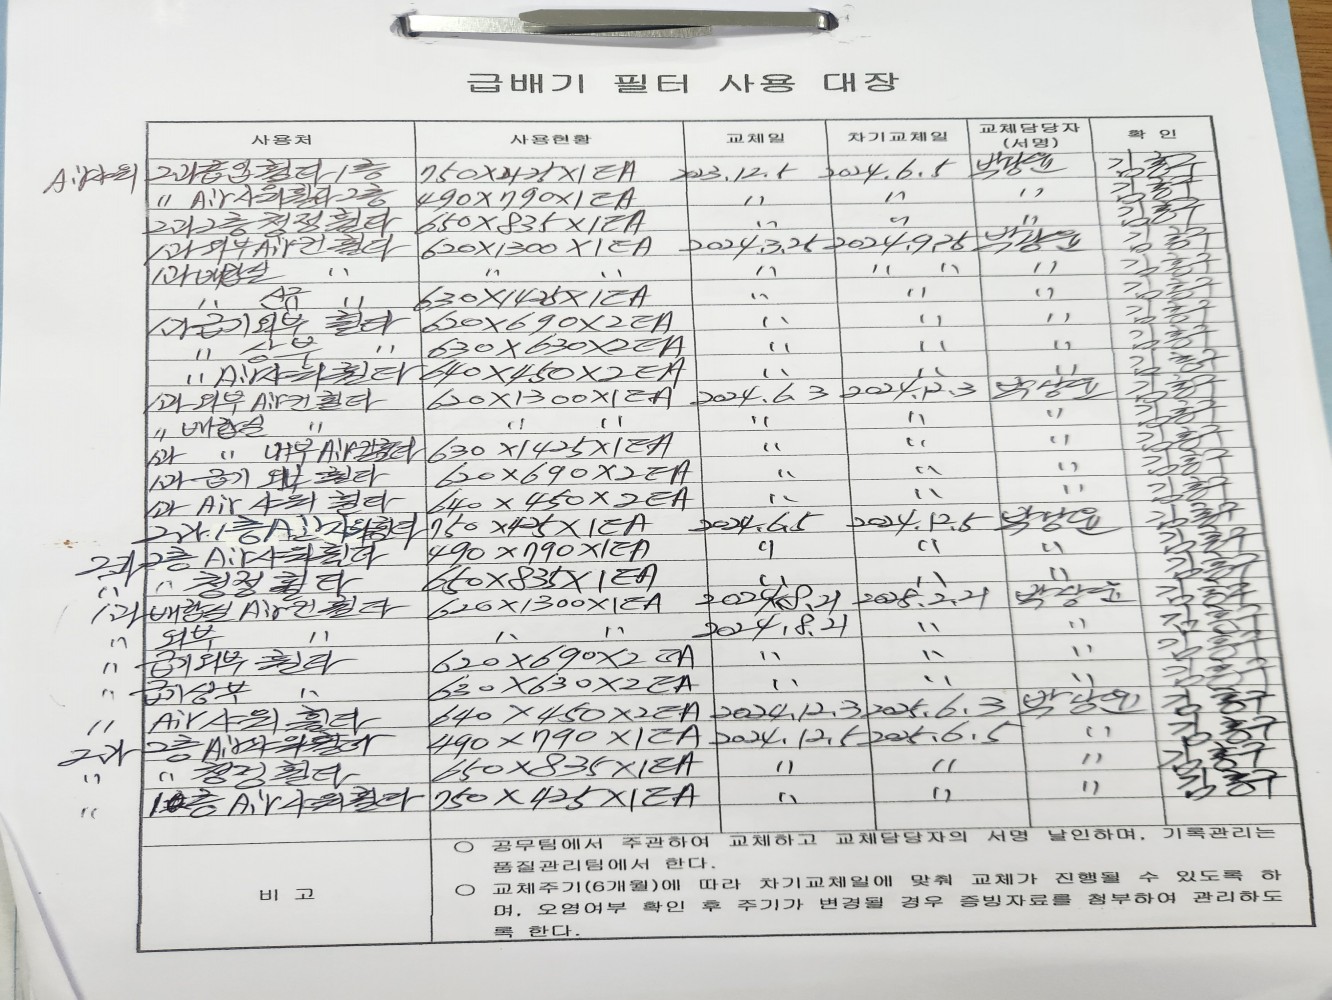 급배기 필터 사용 대장
사용처 사용현황 교체일 차기교체일 교체담당자 (서명) 확 인
Air샤워 2과 필터 1층 750×425×1EA 2023.12.5 2024.6.5 김흥구
〃 Air샤워필터 2층 490×790×1EA 〃 〃 〃 김흥구
2과 2층 청정필터 650×835×1EA 〃 〃 〃 김흥구
1과 외부 Air건 필터 620×1300×1EA 2024.3.25 2024.9.25 김흥구
1과 배합실 〃 〃 〃 〃 〃 〃 〃 김흥구
〃 〃 630×1425×1EA 〃 〃 〃 김흥구
1과 급기외부 필터 620×690×2EA 〃 〃 〃 김흥구
〃 상부 〃 630×630×2EA 〃 〃 〃 김흥구
〃 Air샤워필터 640×450×2EA 〃 〃 〃 김흥구
1과 외부 Air건필터 620×1300×1EA 2024.6.3 2024.12.3 박상윤 김흥구
〃 배합실 〃 〃 〃 〃 〃 〃 김흥구
1과 〃 내부 Air건필터 630×1425×1EA 〃 〃 〃 김흥구
1과 급기 외부 필터 620×690×2EA 〃 〃 〃 김흥구
1과 Air샤워 필터 640×450×2EA 〃 〃 〃 김흥구
2과 1층 Air샤워필터 750×425×1EA 2024.6.5 2024.12.5 박상윤 김흥구
2과 2층 Air샤워필터 490×790×1EA 〃 〃 〃 김흥구
〃 〃 청정필터 650×835×1EA 〃 〃 〃 김흥구
1과 배합실 Air건필터 620×1300×1EA 2024.8.21 2025.2.21 박상윤 김흥구
〃 외부 〃 〃 〃 2024.8.21 〃 〃 김흥구
〃 급기외부 필터 620×690×2EA 〃 〃 〃 김흥구
〃 급기상부 〃 630×630×2EA 〃 〃 〃 김흥구
〃 Air샤워필터 640×450×2EA 2024.12.3 2025.6.3 박상윤 김흥구
2과 2층 Air샤워필터 490×790×1EA 2024.12.5 2025.6.5 〃 김흥구
〃 〃 청정필터 650×835×1EA 〃 〃 〃 김흥구
〃 1층 Air샤워필터 750×425×1EA 〃 〃 〃 김흥구
비 고
○ 공무팀에서 주관하여 교체하고 교체담당자의 서명 날인하며, 기록관리는
품질관리팀에서 한다.
○ 교체주기(6개월)에 따라 차기교체일에 맞춰 교체가 진행될 수 있도록 하
며, 오염여부 확인 후 주기가 변경될 경우 증빙자료를 첨부하여 관리하도
록 한다.